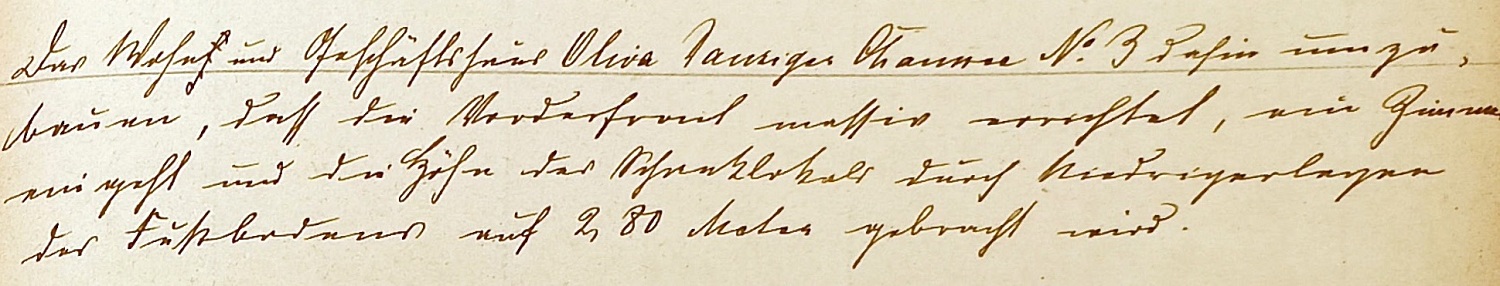 Das Wohn- und Geschäftshaus Oliva Danziger Chaussee No. 3 dahin umzu-
bauen, dass die Vorderfront massiv errichtet, ein Zimmer
eingeht und die Höhe des Schanklokals durch Niedrigerlegen
des Fussbodens auf 2,80 Meter gebracht wird.